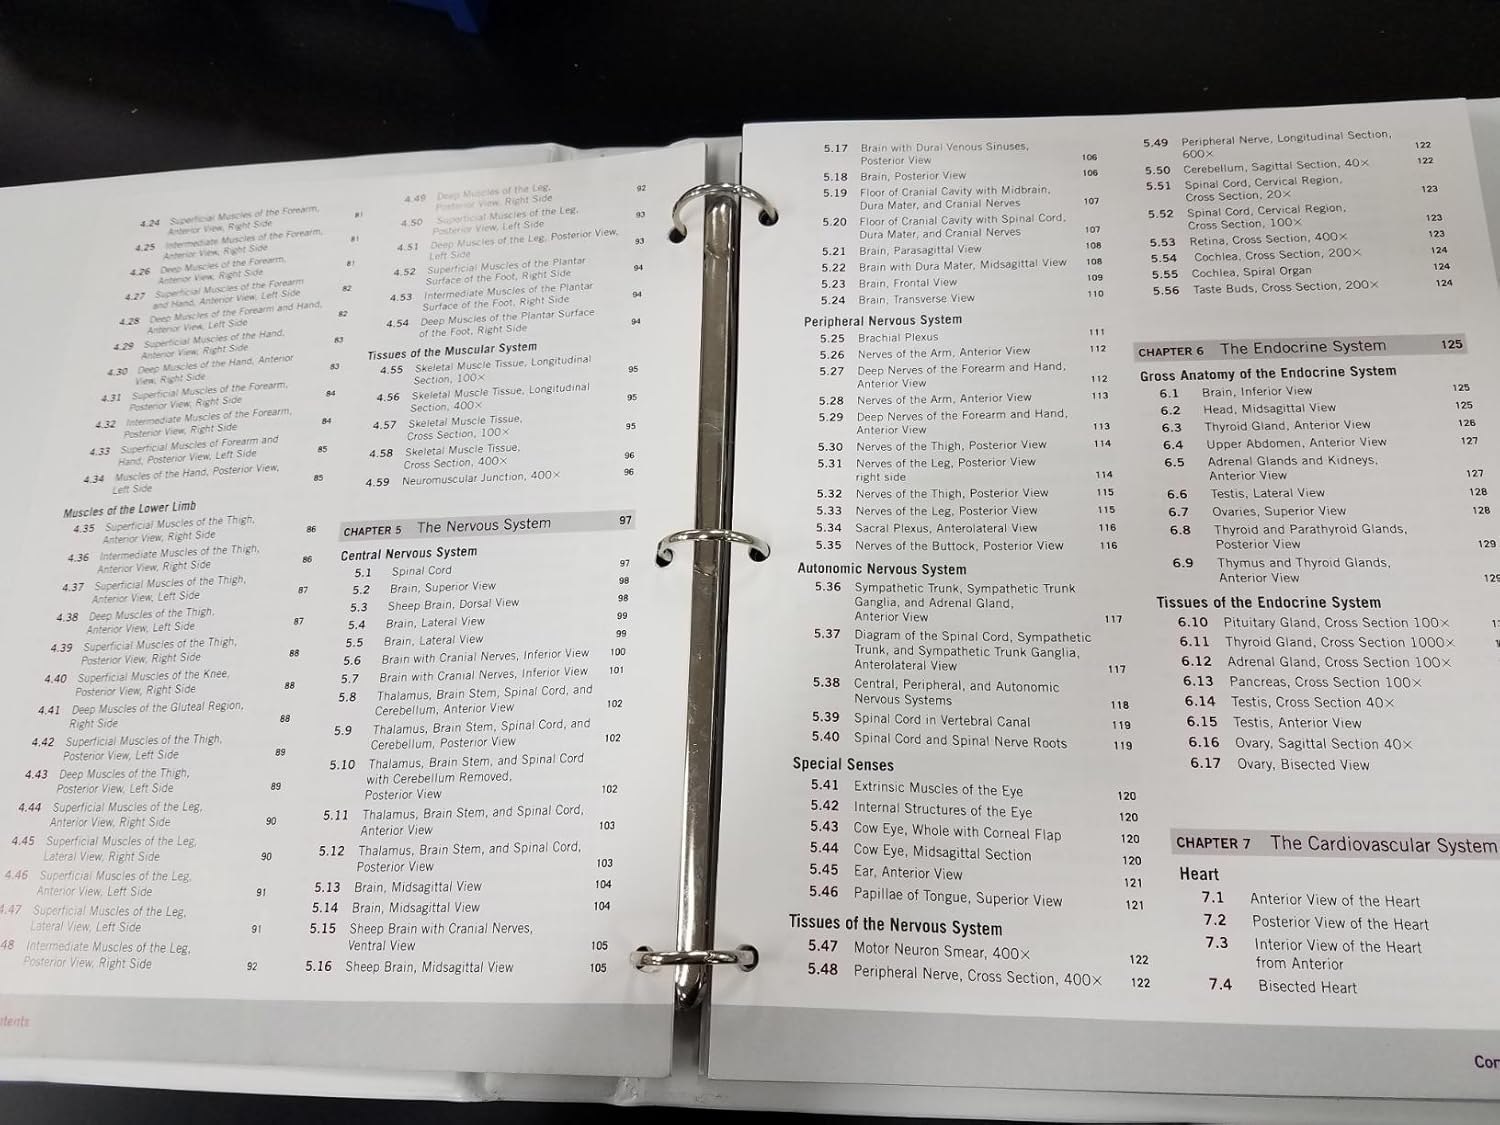 4.24 Superficial Muscles of the Forearm,
Anterior View, Right Side 81
4.25 Intermediate Muscles of the Forearm,
Anterior View, Right Side 81
4.26 Deep Muscles of the Forearm,
Anterior View, Right Side 81
4.27 Superficial Muscles of the Forearm
and Hand, Anterior View, Left Side 82
4.28 Deep Muscles of the Forearm and Hand,
Anterior View, Left Side 82
4.29 Superficial Muscles of the Hand,
Anterior View, Right Side 83
4.30 Deep Muscles of the Hand, Anterior
View, Right Side 83
4.31 Superficial Muscles of the Forearm,
Posterior View, Right Side 84
4.32 Intermediate Muscles of the Forearm,
Posterior View, Right Side 84
4.33 Superficial Muscles of Forearm and
Hand, Posterior View, Left Side 85
4.34 Muscles of the Hand, Posterior View,
Left Side 85
Muscles of the Lower Limb
4.35 Superficial Muscles of the Thigh,
Anterior View, Right Side 86
4.36 Intermediate Muscles of the Thigh,
Anterior View, Right Side 86
4.37 Superficial Muscles of the Thigh,
Anterior View, Left Side 87
4.38 Deep Muscles of the Thigh,
Anterior View, Left Side 87
4.39 Superficial Muscles of the Thigh,
Posterior View, Right Side 88
4.40 Superficial Muscles of the Knee,
Posterior View, Right Side 88
4.41 Deep Muscles of the Gluteal Region,
Right Side 88
4.42 Superficial Muscles of the Thigh,
Posterior View, Left Side 89
4.43 Deep Muscles of the Thigh,
Posterior View, Left Side 89
4.44 Superficial Muscles of the Leg,
Anterior View, Right Side 90
4.45 Superficial Muscles of the Leg,
Lateral View, Right Side 90
4.46 Superficial Muscles of the Leg,
Anterior View, Left Side 91
4.47 Superficial Muscles of the Leg,
Lateral View, Left Side 91
48 Intermediate Muscles of the Leg,
Posterior View, Right Side 92
ntents
4.49 Deep Muscles of the Leg,
Posterior View, Right Side 92
4.50 Superficial Muscles of the Leg,
Posterior View, Left Side 93
4.51 Deep Muscles of the Leg, Posterior View,
Left Side 93
4.52 Superficial Muscles of the Plantar
Surface of the Foot, Right Side 94
4.53 Intermediate Muscles of the Plantar
Surface of the Foot, Right Side 94
4.54 Deep Muscles of the Plantar Surface
of the Foot, Right Side 94
Tissues of the Muscular System
4.55 Skeletal Muscle Tissue, Longitudinal
Section, 100× 95
4.56 Skeletal Muscle Tissue, Longitudinal
Section, 400× 95
4.57 Skeletal Muscle Tissue,
Cross Section, 100× 95
4.58 Skeletal Muscle Tissue,
Cross Section, 400× 96
4.59 Neuromuscular Junction, 400× 96
CHAPTER 5 The Nervous System 97
Central Nervous System
5.1 Spinal Cord 97
5.2 Brain, Superior View 98
5.3 Sheep Brain, Dorsal View 98
5.4 Brain, Lateral View 99
5.5 Brain, Lateral View 99
5.6 Brain with Cranial Nerves, Inferior View 100
5.7 Brain with Cranial Nerves, Inferior View 101
5.8 Thalamus, Brain Stem, Spinal Cord, and
Cerebellum, Anterior View 102
5.9 Thalamus, Brain Stem, Spinal Cord, and
Cerebellum, Posterior View 102
5.10 Thalamus, Brain Stem, and Spinal Cord
with Cerebellum Removed,
Posterior View 102
5.11 Thalamus, Brain Stem, and Spinal Cord,
Anterior View 103
5.12 Thalamus, Brain Stem, and Spinal Cord,
Posterior View 103
5.13 Brain, Midsagittal View 104
5.14 Brain, Midsagittal View 104
5.15 Sheep Brain with Cranial Nerves,
Ventral View 105
5.16 Sheep Brain, Midsagittal View 105
5.17 Brain with Dural Venous Sinuses,
Posterior View 106
5.18 Brain, Posterior View 106
5.19 Floor of Cranial Cavity with Midbrain,
Dura Mater, and Cranial Nerves 107
5.20 Floor of Cranial Cavity with Spinal Cord,
Dura Mater, and Cranial Nerves 107
5.21 Brain, Parasagittal View 108
5.22 Brain with Dura Mater, Midsagittal View 108
5.23 Brain, Frontal View 109
5.24 Brain, Transverse View 110
Peripheral Nervous System
5.25 Brachial Plexus 111
5.26 Nerves of the Arm, Anterior View 112
5.27 Deep Nerves of the Forearm and Hand,
Anterior View 112
5.28 Nerves of the Arm, Anterior View 113
5.29 Deep Nerves of the Forearm and Hand,
Anterior View 113
5.30 Nerves of the Thigh, Posterior View 114
5.31 Nerves of the Leg, Posterior View
right side 114
5.32 Nerves of the Thigh, Posterior View 115
5.33 Nerves of the Leg, Posterior View 115
5.34 Sacral Plexus, Anterolateral View 116
5.35 Nerves of the Buttock, Posterior View 116
Autonomic Nervous System
5.36 Sympathetic Trunk, Sympathetic Trunk
Ganglia, and Adrenal Gland,
Anterior View 117
5.37 Diagram of the Spinal Cord, Sympathetic
Trunk, and Sympathetic Trunk Ganglia,
Anterolateral View 117
5.38 Central, Peripheral, and Autonomic
Nervous Systems 118
5.39 Spinal Cord in Vertebral Canal 119
5.40 Spinal Cord and Spinal Nerve Roots 119
Special Senses
5.41 Extrinsic Muscles of the Eye 120
5.42 Internal Structures of the Eye 120
5.43 Cow Eye, Whole with Corneal Flap 120
5.44 Cow Eye, Midsagittal Section 120
5.45 Ear, Anterior View 121
5.46 Papillae of Tongue, Superior View 121
Tissues of the Nervous System
5.47 Motor Neuron Smear, 400× 122
5.48 Peripheral Nerve, Cross Section, 400× 122
5.49 Peripheral Nerve, Longitudinal Section,
600× 122
5.50 Cerebellum, Sagittal Section, 40× 122
5.51 Spinal Cord, Cervical Region,
Cross Section, 20× 123
5.52 Spinal Cord, Cervical Region,
Cross Section, 100× 123
5.53 Retina, Cross Section, 400× 123
5.54 Cochlea, Cross Section, 200× 124
5.55 Cochlea, Spiral Organ 124
5.56 Taste Buds, Cross Section, 200× 124
CHAPTER 6 The Endocrine System 125
Gross Anatomy of the Endocrine System
6.1 Brain, Inferior View 125
6.2 Head, Midsagittal View 125
6.3 Thyroid Gland, Anterior View 126
6.4 Upper Abdomen, Anterior View 127
6.5 Adrenal Glands and Kidneys,
Anterior View 127
6.6 Testis, Lateral View 128
6.7 Ovaries, Superior View 128
6.8 Thyroid and Parathyroid Glands,
Posterior View 129
6.9 Thymus and Thyroid Glands,
Anterior View 129
Tissues of the Endocrine System
6.10 Pituitary Gland, Cross Section 100×
6.11 Thyroid Gland, Cross Section 1000×
6.12 Adrenal Gland, Cross Section 100×
6.13 Pancreas, Cross Section 100×
6.14 Testis, Cross Section 40×
6.15 Testis, Anterior View
6.16 Ovary, Sagittal Section 40×
6.17 Ovary, Bisected View
CHAPTER 7 The Cardiovascular System
Heart
7.1 Anterior View of the Heart
7.2 Posterior View of the Heart
7.3 Interior View of the Heart
from Anterior
7.4 Bisected Heart
Con